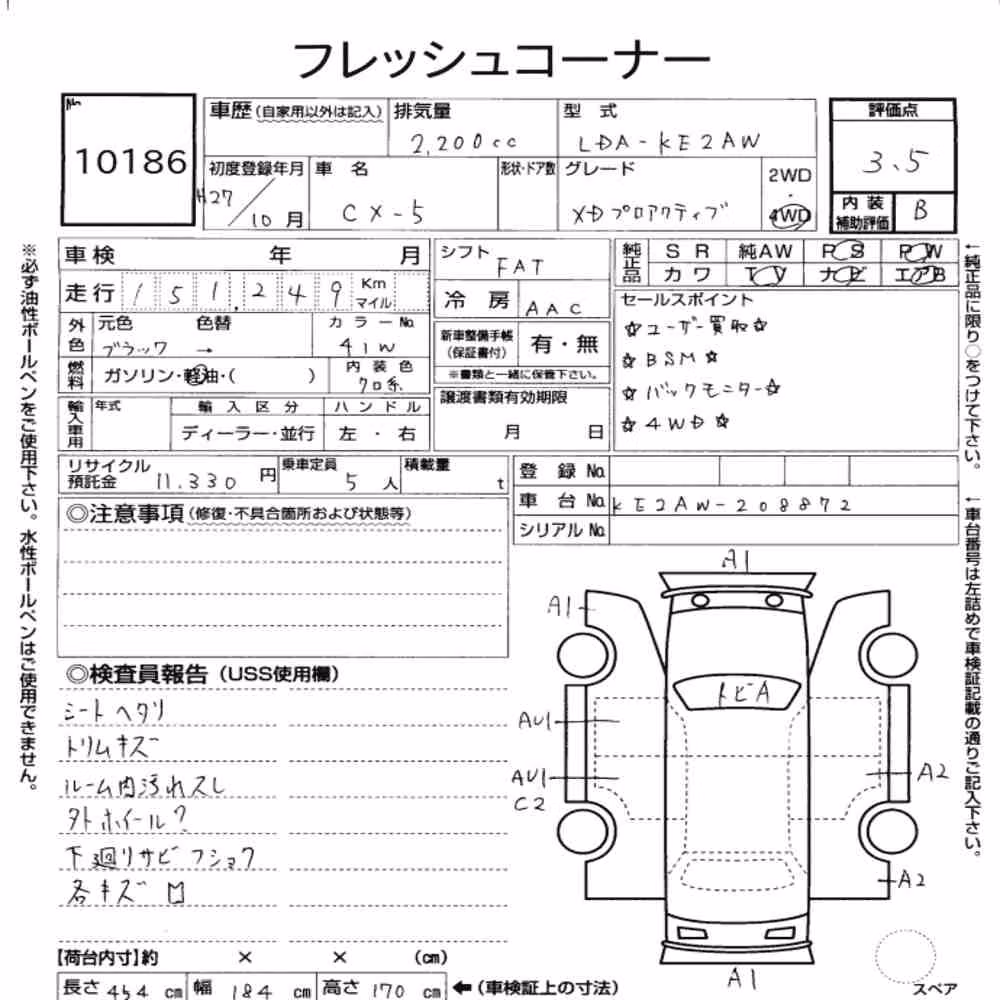 フレッシュコーナー
No. 10186
車歴 (自家用以外は記入) 排気量 2,200cc 型式 LDA-KE2AW 評価点 3.5
初度登録年月 H27/10月 車名 CX-5 形状・ドア数 グレード XDプロアクティブ 2WD・4WD
内装補助評価 B
車検 年 月
シフト FAT
純正品 SR 純AW PS PW
カワ TV ナビ エアB
走行 151,249 Km マイル
冷房 AAC
セールスポイント
☆ユーザー買取☆
☆BSM☆
☆バックモニター☆
☆4WD☆
外色 元色 ブラック → 色替 カラーNo. 41W
新車整備手帳 (保証書付) 有・無
※書類と一緒に保管下さい。
燃料 ガソリン・軽油・( ) 内装色 クロ系
譲渡書類有効期限 月 日
輸入車用 年式 輸入区分 ハンドル
ディーラー・並行 左・右
リサイクル預託金 11.330 円 乗車定員 5人 積載量 t
登録No.
車台No. KE2AW-208872
シリアルNo.
◎注意事項 (修復・不具合箇所および状態等)
◎検査員報告 (USS使用欄)
シートヘタリ
トリムキズ
ルーム内汚れスレ
外ホイール?
下廻りサビフショク
各キズ凹
A1
A1
トビA
AU1
AU1
C2
A2
A2
A1
スペア
【荷台内寸】約 × × (cm)
長さ 454 cm 幅 184 cm 高さ 170 cm ←(車検証上の寸法)
※必ず油性ボールペンをご使用下さい。水性ボールペンはご使用できません。
←純正品に限り○をつけて下さい。
←車台番号は左詰めで車検証記載の通りご記入下さい。